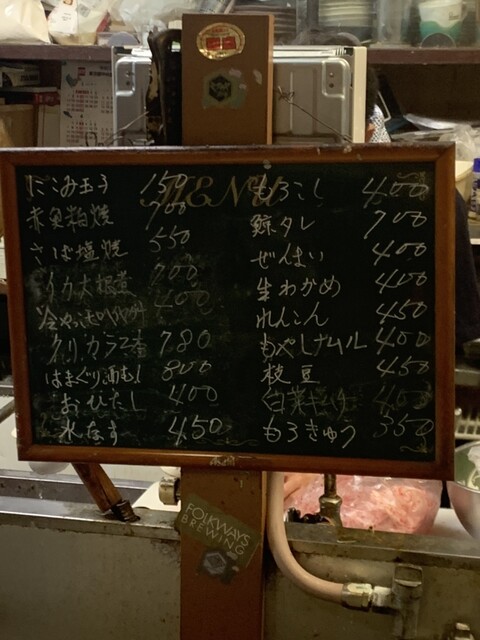 にこみ玉子 150
赤魚粕焼 700
さば塩焼 550
イカ大根煮 700
冷やっこ 400
クリカラ2本 780
はまぐり酒むし 800
おひたし 400
水なす 450
MENU
もろこし 400
鯨タレ 700
ぜんまい 400
生わかめ 400
れんこん 450
400
枝豆 450
白菜キムチ 400
もろきゅう 350
FOLKWAYS
BREWING